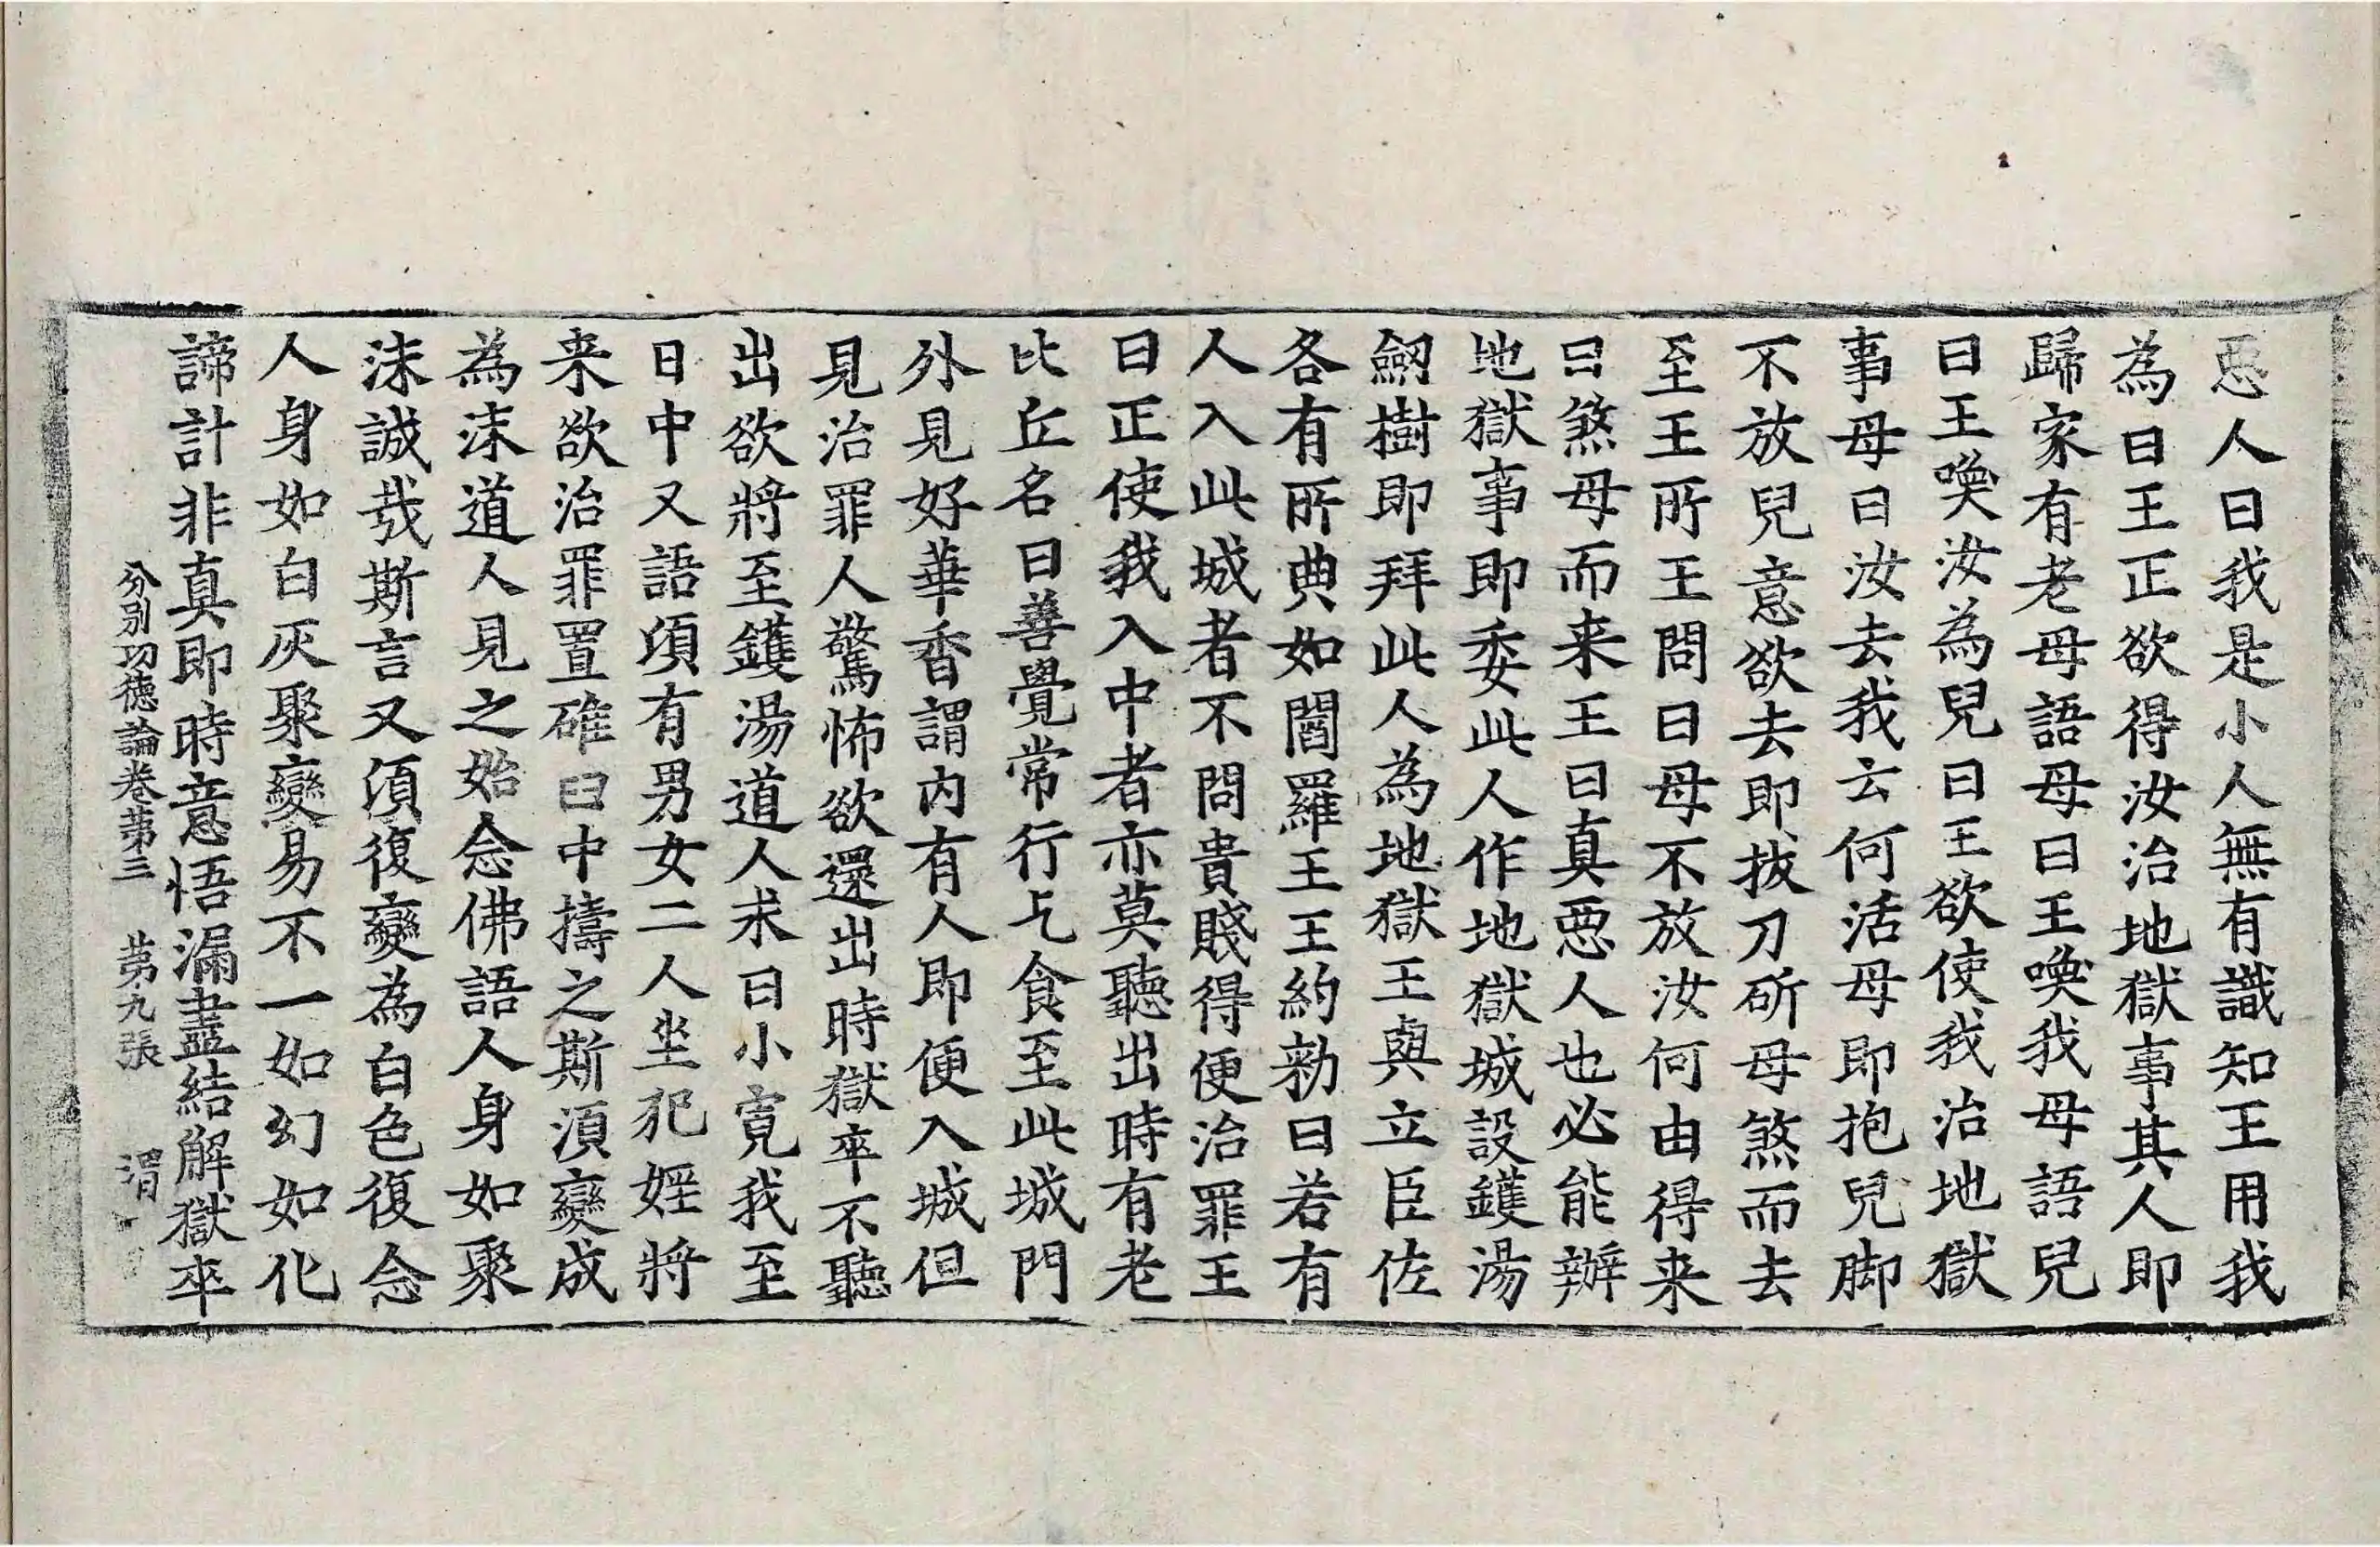 惡人曰我是小人無有識知王用我
為曰王正欲得汝治地獄事其人即
歸家有老母語母曰王喚我母語兒
曰王喚汝為兒曰王欲使我治地獄
事母曰汝去我云何活母即抱兒脚
不放兒意欲去即拔刀斫母煞而去
至王所王問曰母不放汝何由得来
曰煞母而来王曰真惡人也必能辦
地獄事即委此人作地獄城設鑊湯
劒樹即拜此人為地獄王與立臣佐
各有所典如閻羅王王約勑曰若有
人入此城者不問貴賤得便治罪王
曰正使我入中者亦莫聽出時有老
比丘名曰善覺常行乞食至此城門
外見好華香謂内有人即便入城但
見治罪人驚怖欲還出時獄卒不聽
出欲將至鑊湯道人求曰小寬我至
日中又語須有男女二人坐犯婬將
来欲治罪置碓臼中擣之斯須變成
為沫道人見之始念佛語人身如聚
沫誠㦲斯言又須復變為白色復念
人身如白灰聚變易不一如幻如化
諦計非真即時意悟漏盡結解獄卒
分別功德論卷第三　第九張　渭